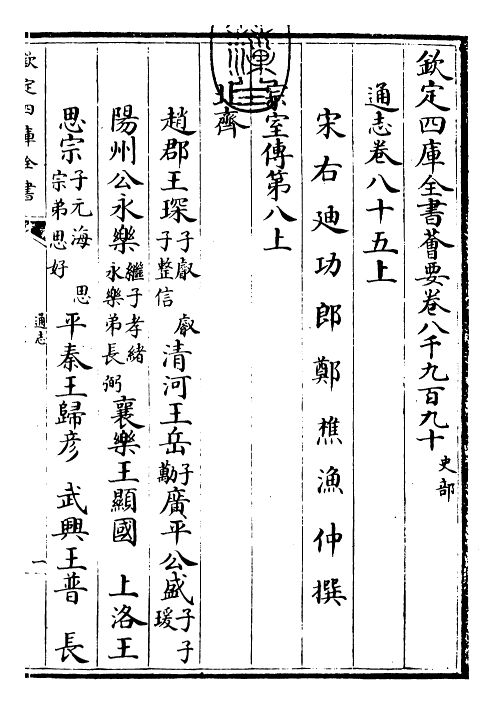 欽定四庫全書薈要卷八千九百九十 史部
通志卷八十五上
宋右迪功郎鄭樵漁仲撰
宗室傳第八上
北齊
趙郡王琛 子叡 叡子整信 清河王岳 子勱 廣平公盛 子子瑗
陽州公永樂 繼子孝緒 永樂弟長弼 襄樂王顯國 上洛王
思宗 子元海 思宗弟思好 平秦王歸彦 武興王普 長
欽定四庫全書
通志
一